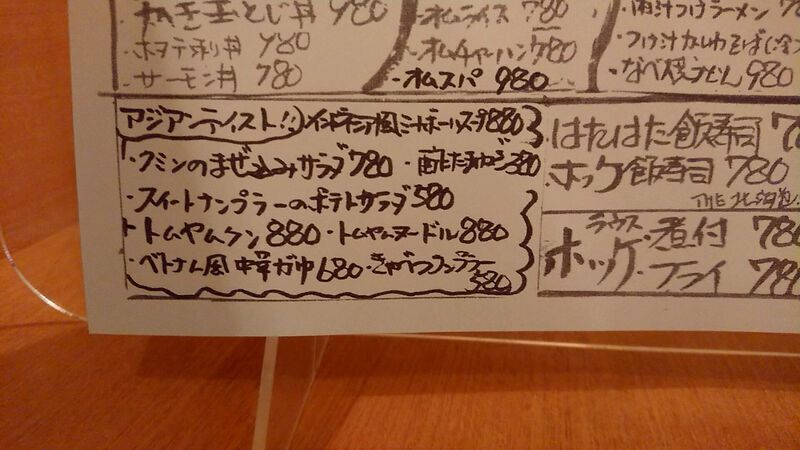 玉とじ丼 980
・ホタテ刺丼 980
・サーモン丼 780
・オムライス 780
・オムチャーハン 780
・オムスパ 980
・肉汁つけラーメン 78
・つけ汁かしわそば(冷
・なべ焼うどん 980
アジアンテイスト!! インドネシア風ミートボールスープ 880
・クミンのまぜ込みサラダ 780 ・ 380
・スイートナンプラーのポテトサラダ 580
・トムヤムクン 880 ・トムヤムヌードル 880
・ベトナム風 手羽ガ中 680 ・きゃべつナンプラー
580
はたはた飯寿司 78
ホッケ飯寿司 780
THE 北海道
ラウス
ホッケ・煮付 780
フライ 780